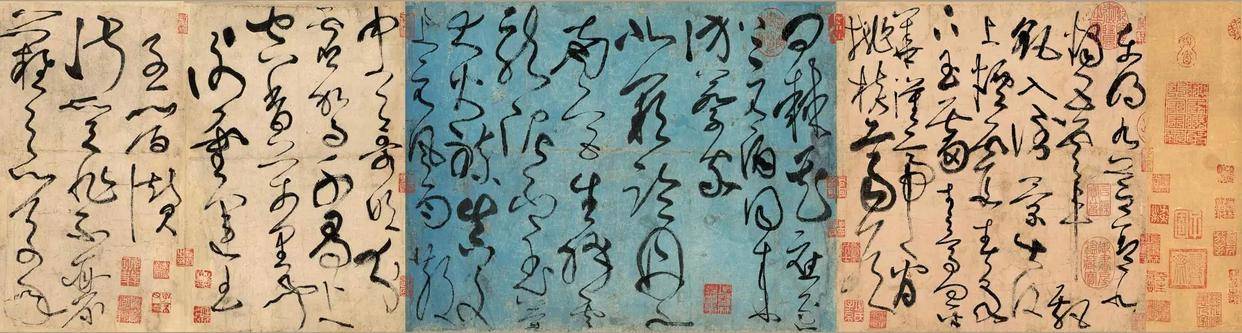 東明九芝蓋北
燭五雲車飄
飖入倒景出沒
上煙霞春泉
下玉霤青鳥向金
華漢帝看
桃核齊侯
問棘花應逐
上元酒同來
訪蔡家
北闕臨丹水
南宮生絳雲
龍泥印玉簡
大火煉真文
上元風雨散
中天歌吹分
靈駕千尋上
空香萬里聞
謝靈運王
子晉贊
淑質非不麗
難以之百年